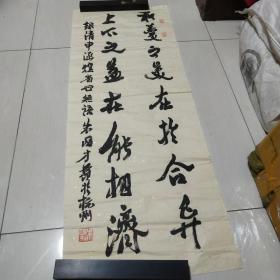 和羹之美在于合异
上下之益在能相济
录清申涵煜省心短语朱国才书于扬州